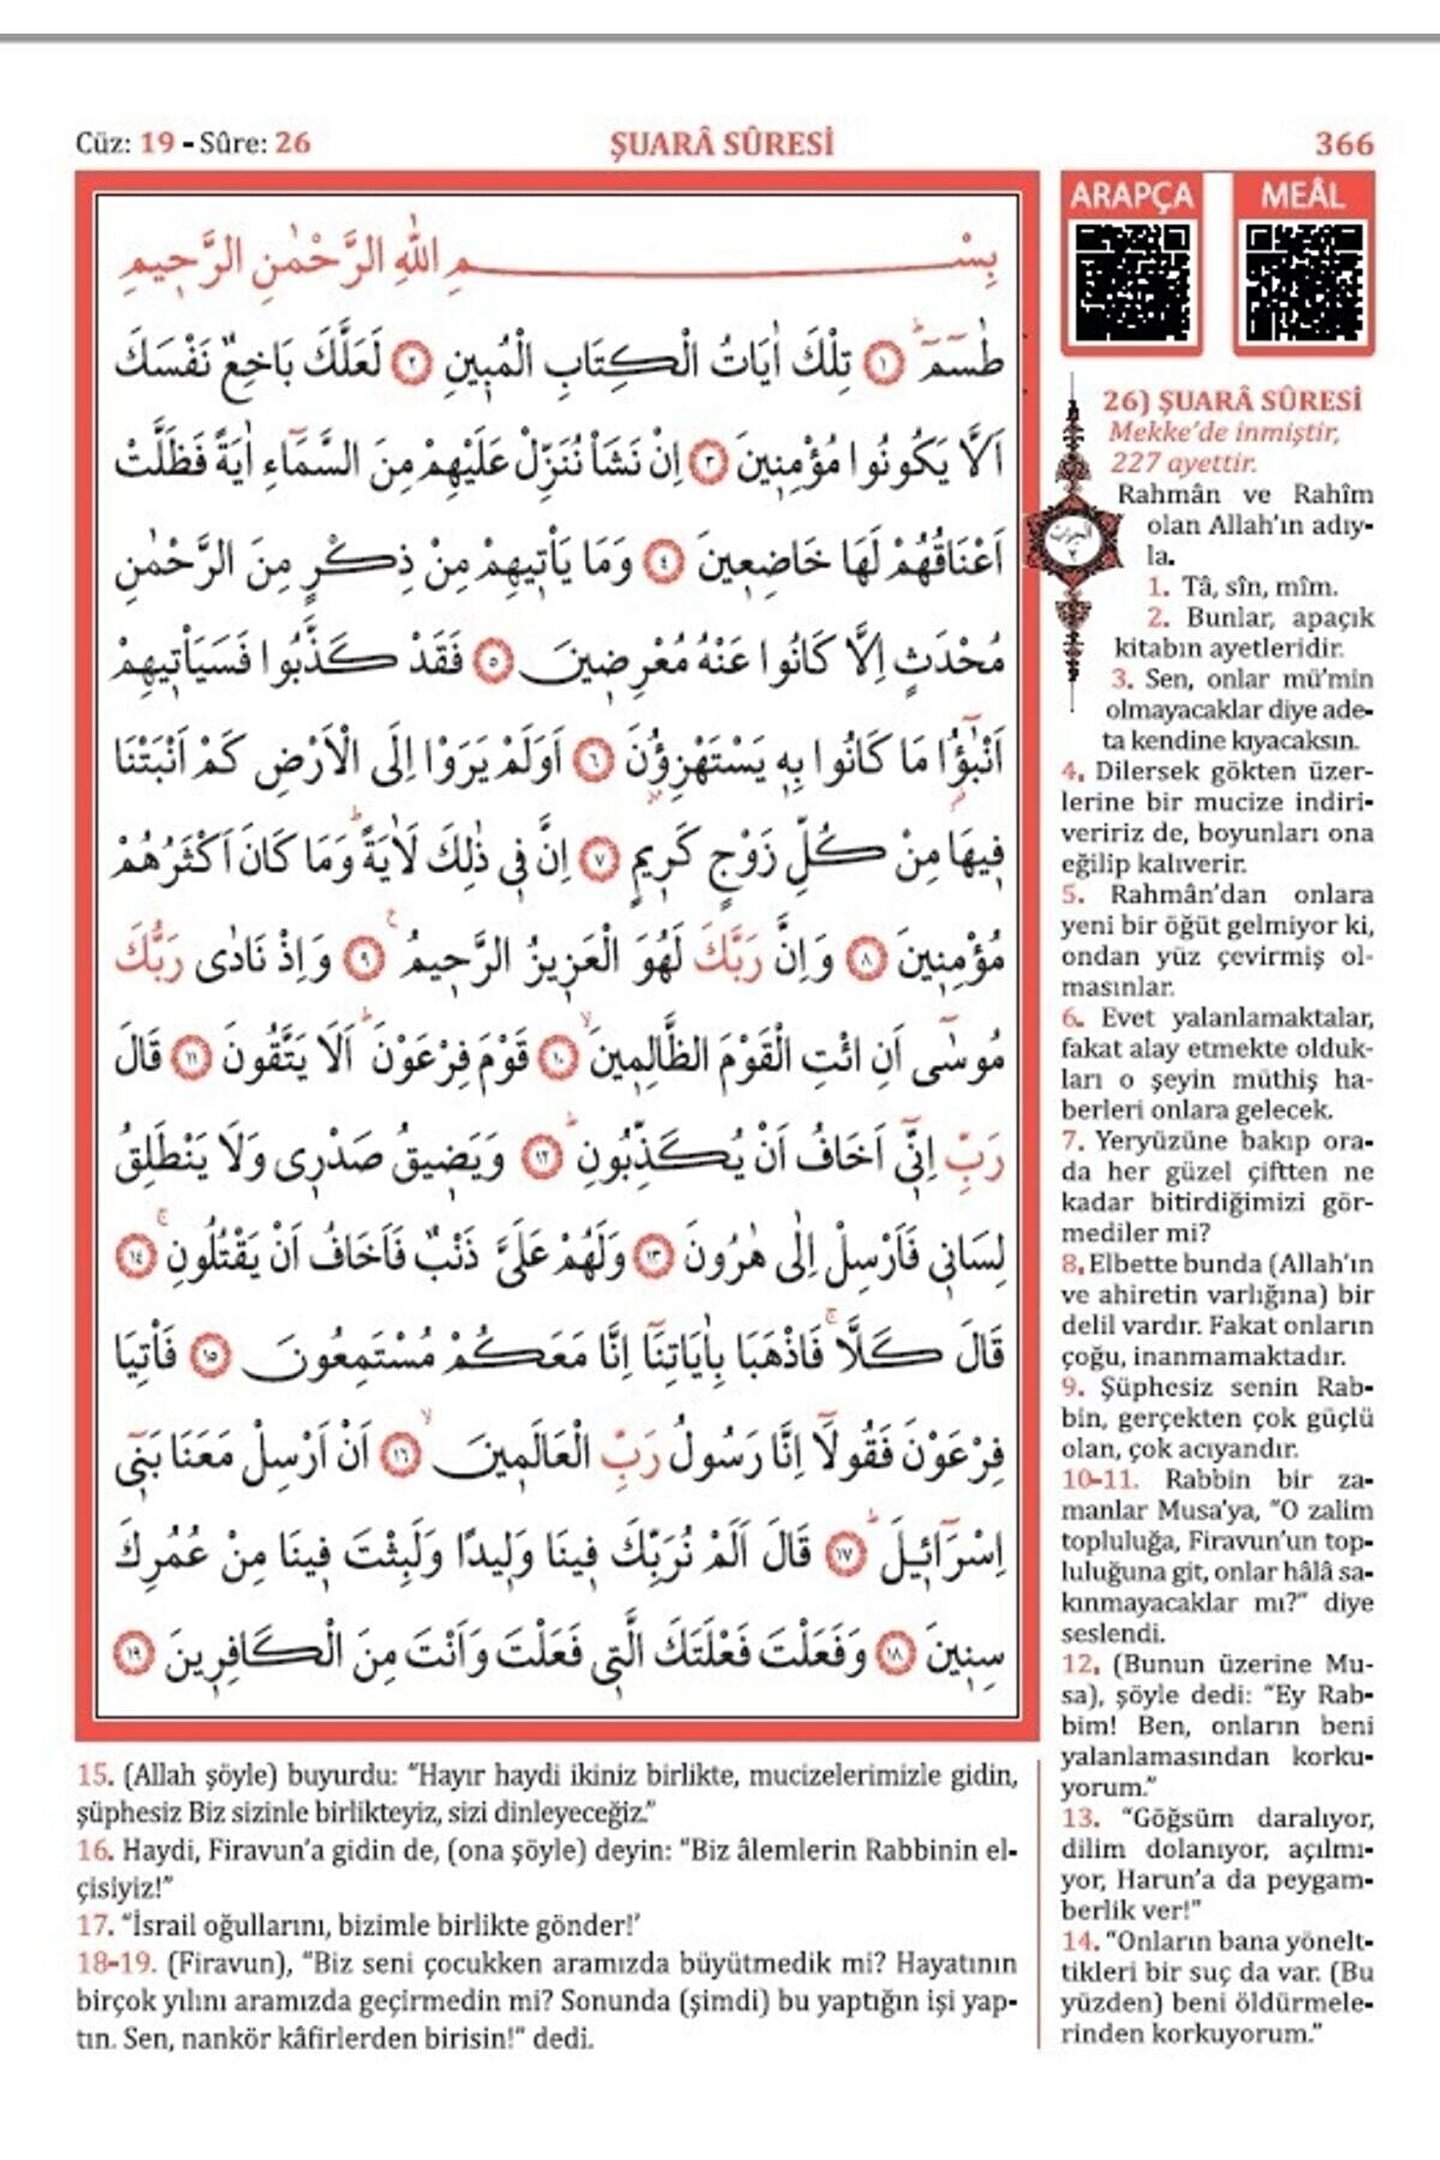 Cüz: 19 - Sûre: 26
ŞUARÂ SÛRESİ
366
بِسْمِ اللّٰهِ الرَّحْمٰنِ الرَّح۪يمِ
طٰسٓمٓ ۜ ﴿١﴾ تِلْكَ اٰيَاتُ الْكِتَابِ الْمُب۪ينِ ﴿٢﴾ لَعَلَّكَ بَاخِعٌ نَفْسَكَ
اَلَّا يَكُونُوا مُؤْمِن۪ينَ ﴿٣﴾ اِنْ نَشَأْ نُنَزِّلْ عَلَيْهِمْ مِنَ السَّمَٓاءِ اٰيَةً فَظَلَّتْ
اَعْنَاقُهُمْ لَهَا خَاضِع۪ينَ ﴿٤﴾ وَمَا يَأْت۪يهِمْ مِنْ ذِكْرٍ مِنَ الرَّحْمٰنِ
مُحْدَثٍ اِلَّا كَانُوا عَنْهُ مُعْرِض۪ينَ ﴿٥﴾ فَقَدْ كَذَّبُوا فَسَيَأْت۪يهِمْ
اَنْبٰٓؤُ۬ا مَا كَانُوا بِه۪ يَسْتَهْزِؤُ۫نَ ﴿٦﴾ اَوَلَمْ يَرَوْا اِلَى الْاَرْضِ كَمْ اَنْبَتْنَا
ف۪يهَا مِنْ كُلِّ زَوْجٍ كَر۪يمٍ ﴿٧﴾ اِنَّ ف۪ي ذٰلِكَ لَاٰيَةًۜ وَمَا كَانَ اَكْثَرُهُمْ
مُؤْمِن۪ينَ ﴿٨﴾ وَاِنَّ رَبَّكَ لَهُوَ الْعَز۪يزُ الرَّح۪يمُ۟ ﴿٩﴾ وَاِذْ نَادٰى رَبُّكَ
مُوسٰٓى اَنِ ائْتِ الْقَوْمَ الظَّالِم۪ينَۙ ﴿١٠﴾ قَوْمَ فِرْعَوْنَۜ اَلَا يَتَّقُونَ ﴿١١﴾ قَالَ
رَبِّ اِنّ۪ٓي اَخَافُ اَنْ يُكَذِّبُونِۜ ﴿١٢﴾ وَيَض۪يقُ صَدْر۪ي وَلَا يَنْطَلِقُ
لِسَان۪ي فَاَرْسِلْ اِلٰى هٰرُونَ ﴿١٣﴾ وَلَهُمْ عَلَيَّ ذَنْبٌ فَاَخَافُ اَنْ يَقْتُلُونِۚ ﴿١٤﴾
قَالَ كَلَّاۚ فَاذْهَبَا بِاٰيَاتِنَٓا اِنَّا مَعَكُمْ مُسْتَمِعُونَ ﴿١٥﴾ فَأْتِيَا
فِرْعَوْنَ فَقُولَٓا اِنَّا رَسُولُ رَبِّ الْعَالَم۪ينَۙ ﴿١٦﴾ اَنْ اَرْسِلْ مَعَنَا بَن۪ٓي
اِسْرَٓائ۪يلَۜ ﴿١٧﴾ قَالَ اَلَمْ نُرَبِّكَ ف۪ينَا وَل۪يدًا وَلَبِثْتَ ف۪ينَا مِنْ عُمُرِكَ
سِن۪ينَ ﴿١٨﴾ وَفَعَلْتَ فَعْلَتَكَ الَّت۪ي فَعَلْتَ وَاَنْتَ مِنَ الْكَافِر۪ينَ ﴿١٩﴾
ARAPÇA
MEÂL
26) ŞUARÂ SÛRESİ
Mekke'de inmiştir,
227 ayettir.
Rahmân ve Rahîm
olan Allah'ın adıy-
la.
1. Tâ, sîn, mîm.
2. Bunlar, apaçık
kitabın ayetleridir.
3. Sen, onlar mü'min
olmayacaklar diye ade-
ta kendine kıyacaksın.
4. Dilersek gökten üzer-
lerine bir mucize indiri-
veririz de, boyunları ona
eğilip kalıverir.
5. Rahmân'dan onlara
yeni bir öğüt gelmiyor ki,
ondan yüz çevirmiş ol-
masınlar.
6. Evet yalanlamaktalar,
fakat alay etmekte olduk-
ları o şeyin müthiş ha-
berleri onlara gelecek.
7. Yeryüzüne bakıp ora-
da her güzel çiftten ne
kadar bitirdiğimizi gör-
mediler mi?
8. Elbette bunda (Allah'ın
ve ahiretin varlığına) bir
delil vardır. Fakat onların
çoğu, inanmamaktadır.
9. Şüphesiz senin Rab-
bin, gerçekten çok güçlü
olan, çok acıyandır.
10-11. Rabbin bir za-
manlar Musa'ya, "O zalim
topluluğa, Firavun'un top-
luluğuna git, onlar hâlâ sa-
kınmayacaklar mı?" diye
seslendi.
12. (Bunun üzerine Mu-
sa), şöyle dedi: "Ey Rab-
bim! Ben, onların beni
yalanlamasından korku-
yorum."
13. "Göğsüm daralıyor,
dilim dolanıyor, açılmı-
yor, Harun'a da peygam-
berlik ver!"
14. "Onların bana yönelt-
tikleri bir suç da var. (Bu
yüzden) beni öldürmele-
rinden korkuyorum."
15. (Allah şöyle) buyurdu: "Hayır haydi ikiniz birlikte, mucizelerimizle gidin,
şüphesiz Biz sizinle birlikteyiz, sizi dinleyeceğiz."
16. Haydi, Firavun'a gidin de, (ona şöyle) deyin: "Biz âlemlerin Rabbinin el-
çisiyiz!"
17. "İsrail oğullarını, bizimle birlikte gönder!'
18-19. (Firavun), "Biz seni çocukken aramızda büyütmedik mi? Hayatının
birçok yılını aramızda geçirmedin mi? Sonunda (şimdi) bu yaptığın işi yap-
tın. Sen, nankör kâfirlerden birisin!" dedi.